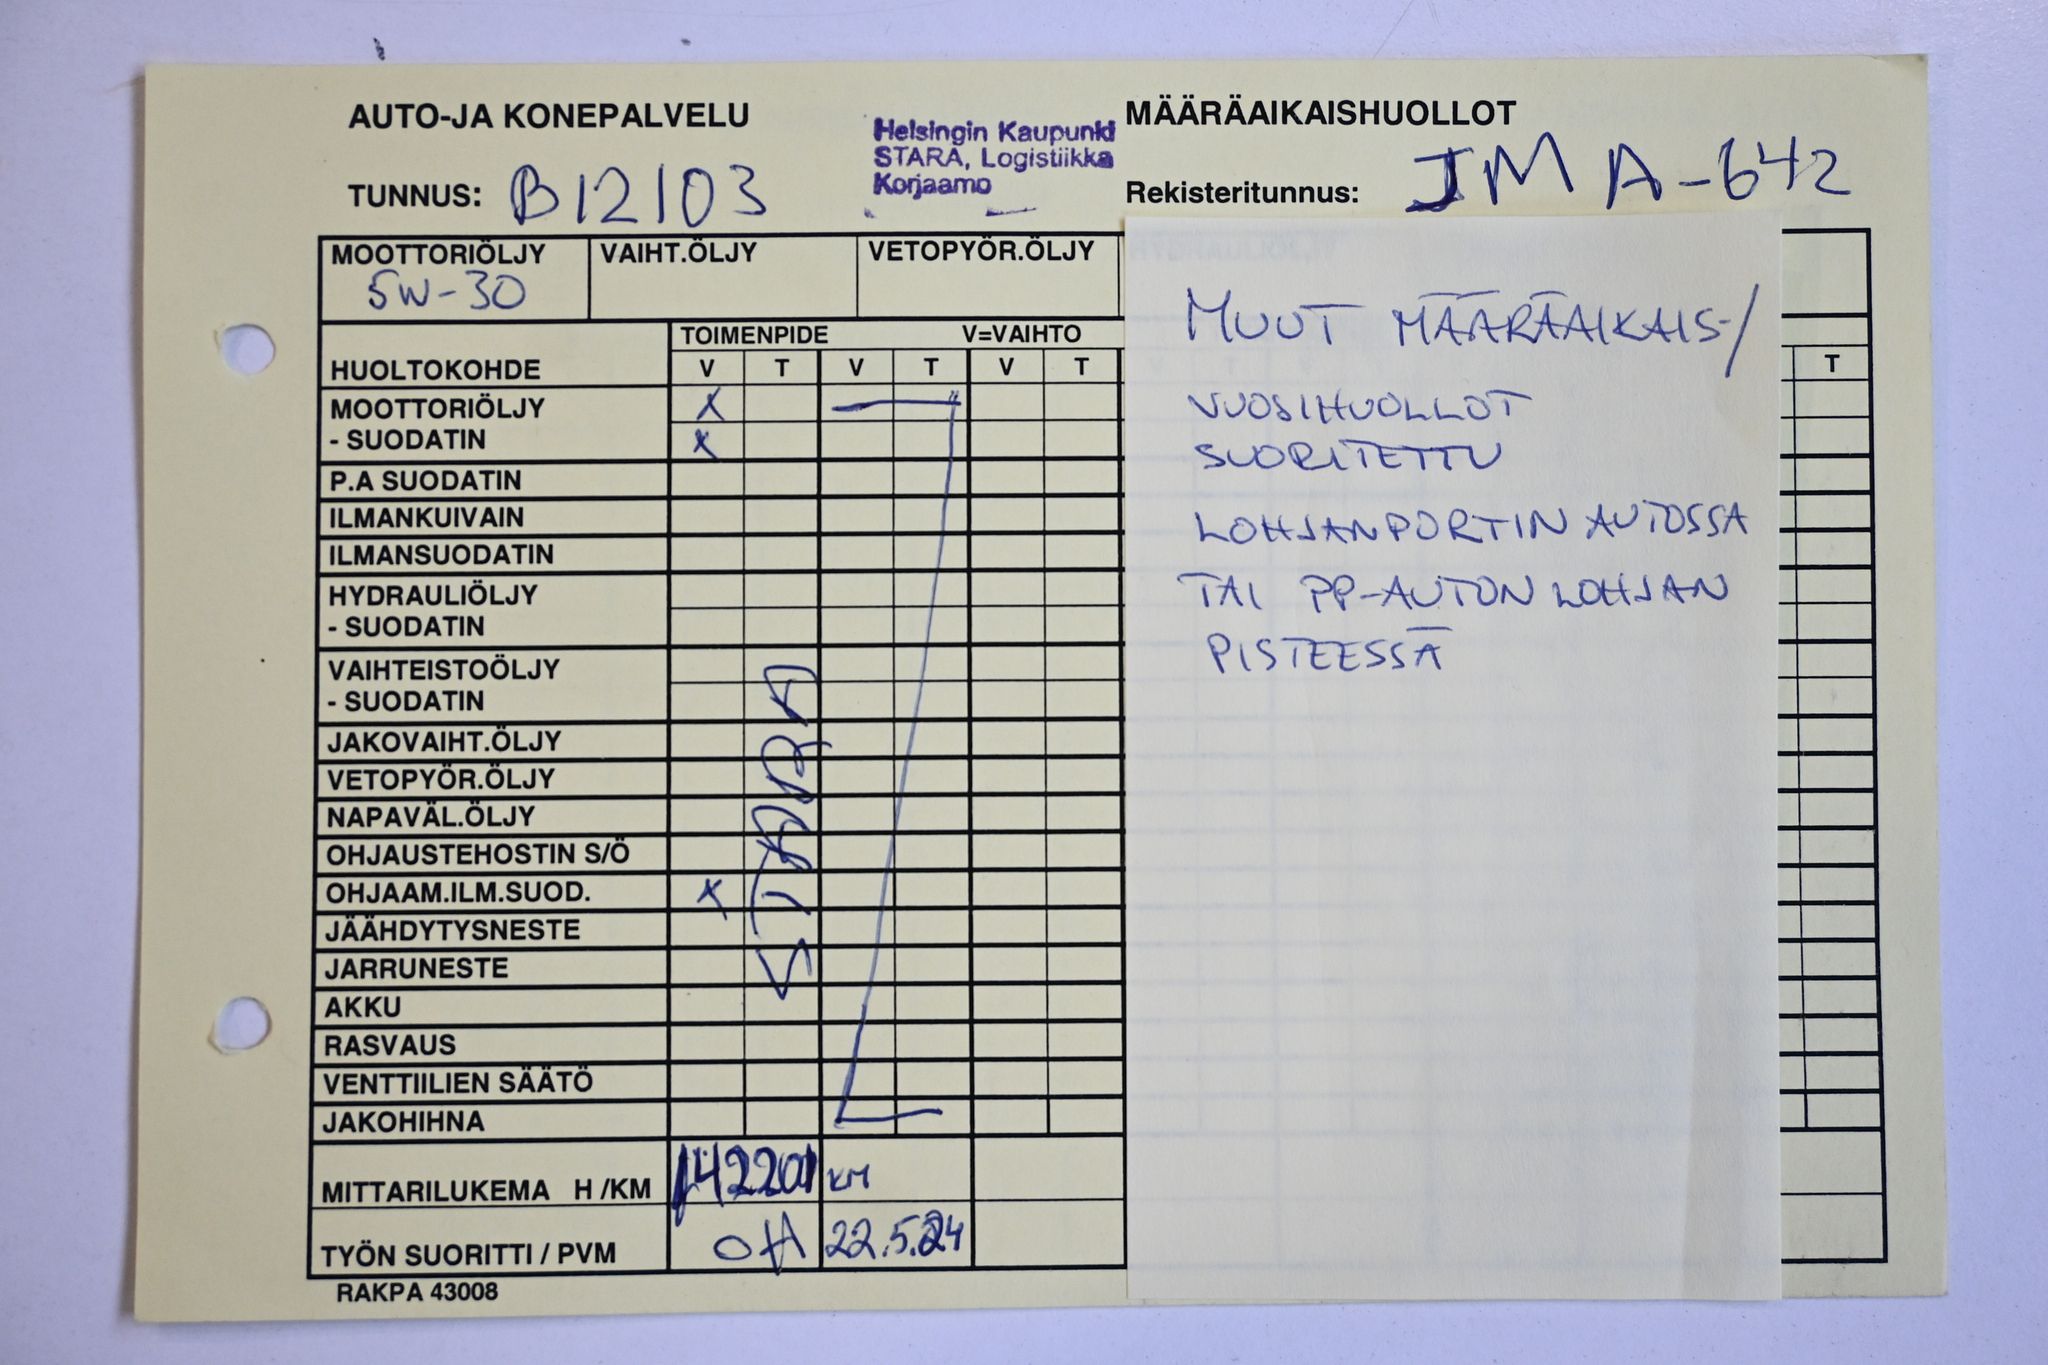 AUTO-JA KONEPALVELU
Helsingin Kaupunki
STARA, Logistiikka
Korjaamo
MÄÄRÄAIKAISHUOLLOT
TUNNUS: B12103
Rekisteritunnus: JMA-642
MOOTTORIÖLJY VAIHT.ÖLJY VETOPYÖR.ÖLJY
5W-30
TOIMENPIDE V=VAIHTO
HUOLTOKOHDE V T V T V T T
MOOTTORIÖLJY X
- SUODATIN X
P.A SUODATIN
ILMANKUIVAIN
ILMANSUODATIN
HYDRAULIÖLJY
- SUODATIN
VAIHTEISTOÖLJY
- SUODATIN
JAKOVAIHT.ÖLJY
VETOPYÖR.ÖLJY
NAPAVÄL.ÖLJY
OHJAUSTEHOSTIN S/Ö
OHJAAM.ILM.SUOD. X
JÄÄHDYTYSNESTE
JARRUNESTE
AKKU
RASVAUS
VENTTIILIEN SÄÄTÖ
JAKOHIHNA
STARA
MITTARILUKEMA H /KM 142201 KM
TYÖN SUORITTI / PVM OH 22.5.24
RAKPA 43008
MUUT MÄÄRÄAIKAIS-/
VUOSIHUOLLOT
SUORITETTU
LOHJANPORTIN AUTOSSA
TAI PP-AUTON LOHJAN
PISTEESSÄ